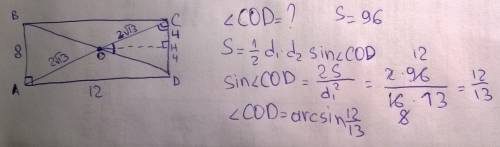 B
C
8
2√13
4
O
H
2√13
4
A
12
D
∠COD = ?   S = 96
S = 1/2 d₁ d₂ sin∠COD
sin∠COD = 2S/d² = 2·96/16·13 = 12/13
12
8
∠COD = arcsin 12/13